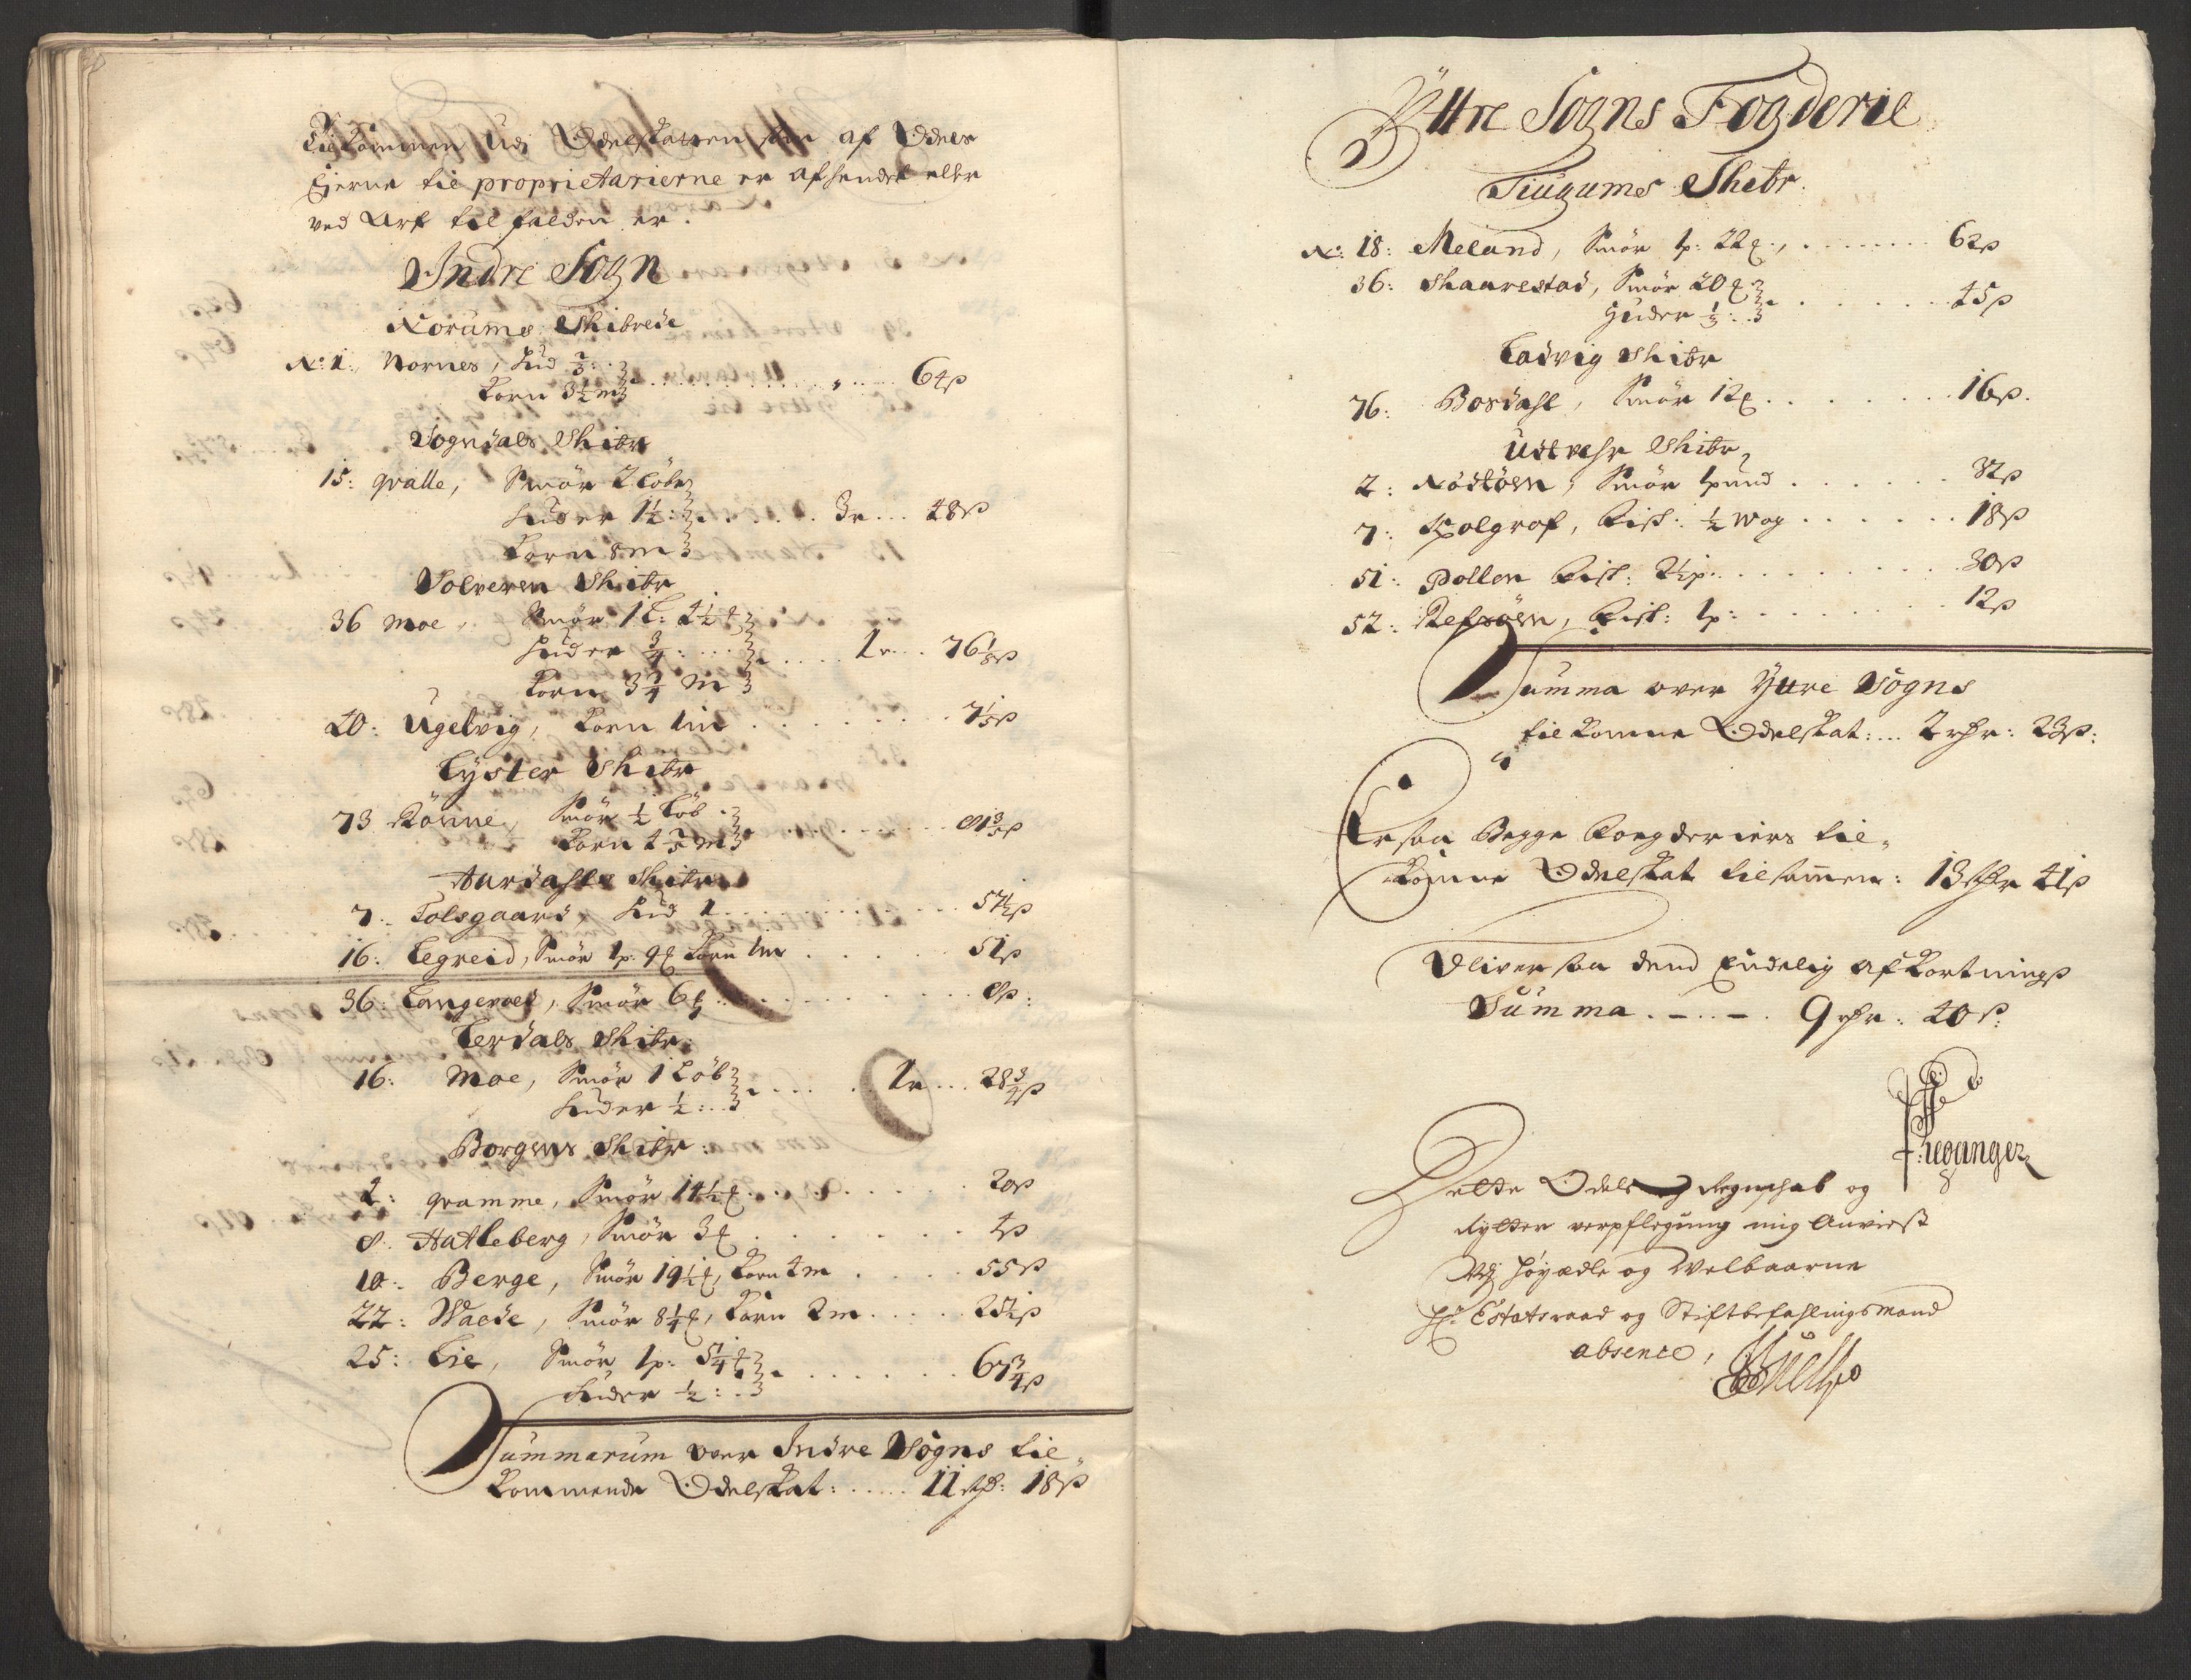 Tilkommen Udj Odelskatten som af Odels
Ejerne til proprietarierne er afhendet eller
ved Arf tilfalden er.
Indre Sogn
Norums Skibrede
No: 1. Nornes, Hud 2/3:
Korn 3½ m . . . . 64ß
Sogndals Skibr
15: Qvalle, Smør 2 Löber
Huder 1½: . . . . 3r ... 48ß
Korn 8m
Solveren Skibr
36 Moe, Smør 1 L: 4½ 
Huder ¾ . . . . 1r ... 76⅛ß
Korn 3¾ m
40: Ugelvig, Korn 1m . . . . 7⅕ß
Lyster Skibr
73 Rönne, Smør ½ Löb
Korn 4 m . . . .
Aardahls Skibr
7: Tolsgaard, Hud 1 . . . . 57½ß
16: Legreid, Smør 1p: 9 Korn 1m . . . . 51ß
36: Langeroed, Smør 6 . . . . 8ß:
Lerdals Skibr:
16: Moe, Smør 1 Löb
Huder ½: . . . . 1r ... 28¾ß
Borgens Skibr:
4: Qvamme, Smør 14½ . . . . 20ß
8: Hatleberg, Smør 3 . . . . 4ß
10: Berge, Smør 19½, Korn 4m . . . . 55ß
22: Waede, Smør 8¼, Korn 2m . . . . 25½ß
25: Lie, Smør 1p: 5¼
Huder ½: . . . . 67¾ß
Summarum over Indre Sogns til„
kommende Odelskat: . . . . 11 rdr: 18ß
Yttre Sogns Fogderie
Tiugums Skibr.
No: 18: Meland, Smør 1p: 22, . . . . 62ß
36: Skaarestad, Smør 20
Huder ⅓: . . . . 45ß
Ladvig Skibr
76: Bordahl, Smør 12 . . . . 16ß.
Udtvehr Skibr,
2: Nödtöen, Smør 1 pund . . . . 32ß
7: Kolgrof, Fisk: ½ wog . . . . 18ß
51: Pollen Fisk: 2½p: . . . . 30ß
52: Refsöen, Fisk: 1p: . . . . 12ß
Summa over Yttre Sogns
tilkomne Odelskat: ... 2 rdr: 23ß:
Er saa Begge Fougderiers til„
komne Odelskat tilsammen: 13 rdr 41ß
Bliver saa dend Endelig afkortnings
Summa . — . . — . 9 rdr: 40ß:
Dette Odels Regnschab og
Rytter verpflegung mig Anviest
Udj Höyædle og Welbaarne
Hr: Estatsraad og Stiftbefahlingsmand
absence,